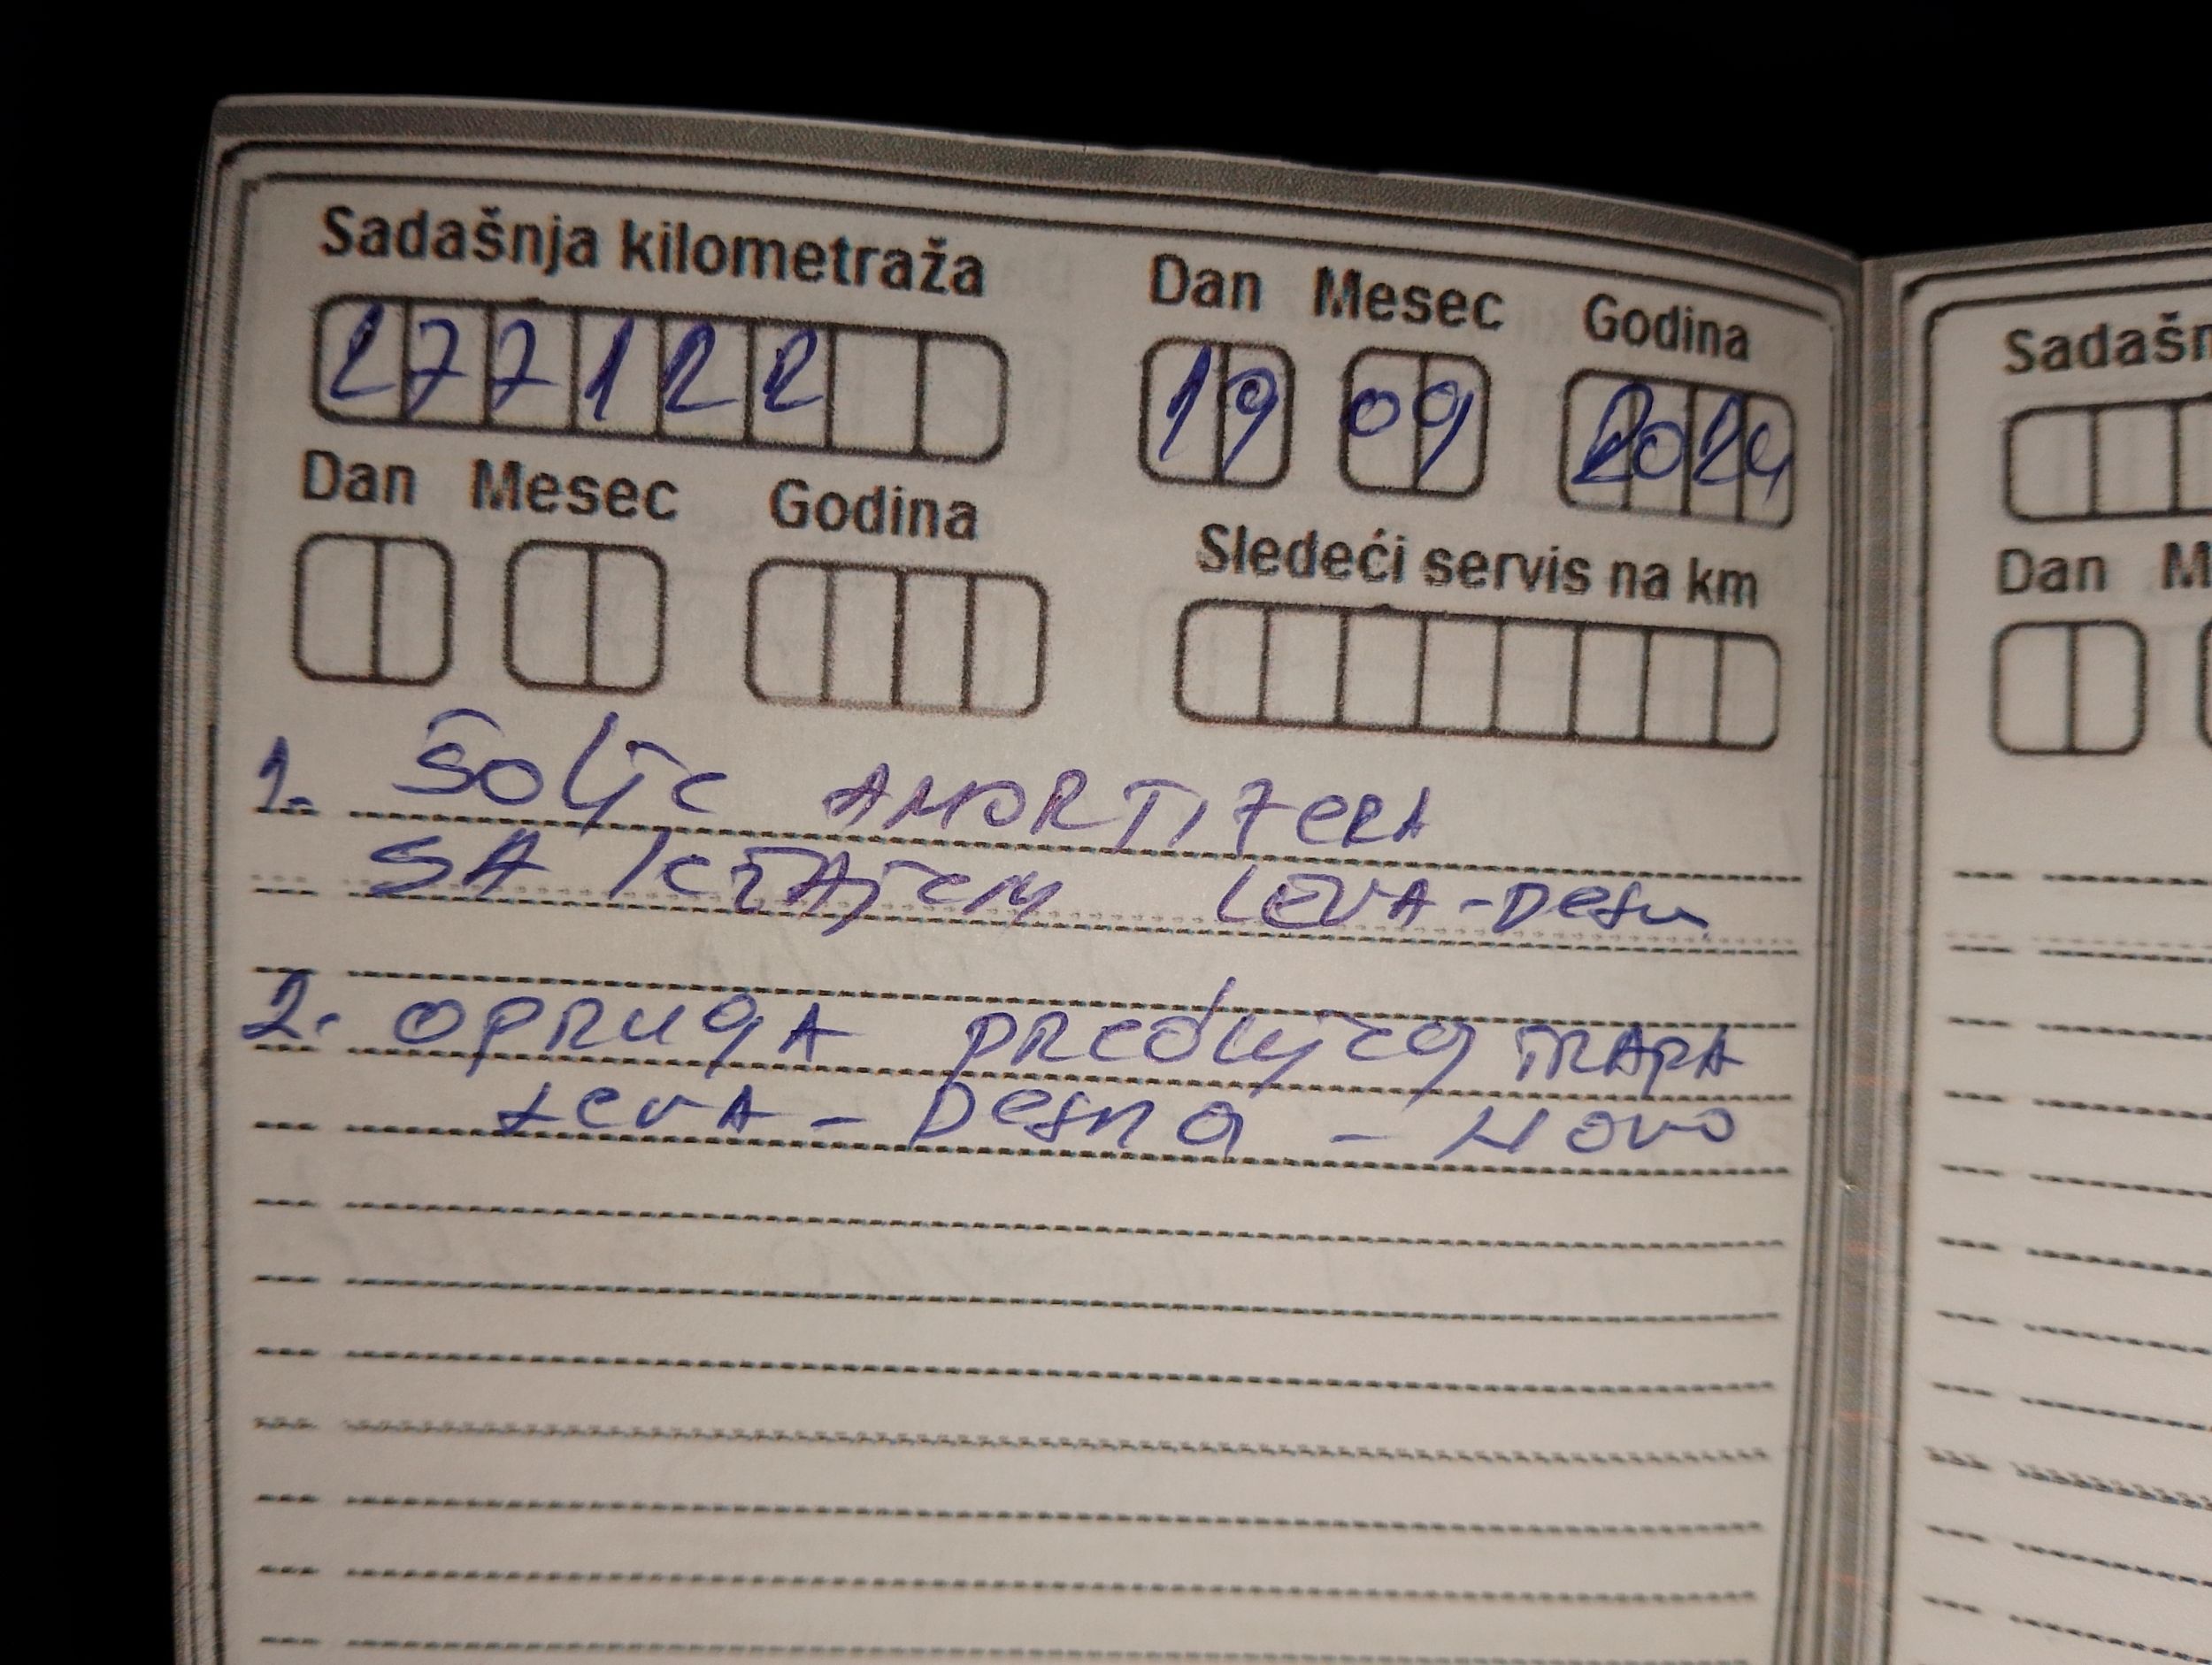 Sadašnja kilometraža Dan Mesec Godina
277122 19 09 2024
Dan Mesec Godina Sledeći servis na km
1. ŠOLJE AMORTIZERA
SA LEŽAJEM LEVA-DESNA
2. OPRUGA PREDNJEG TRAPA
LEVA - DESNA - NOVO
Sadašn
Dan M